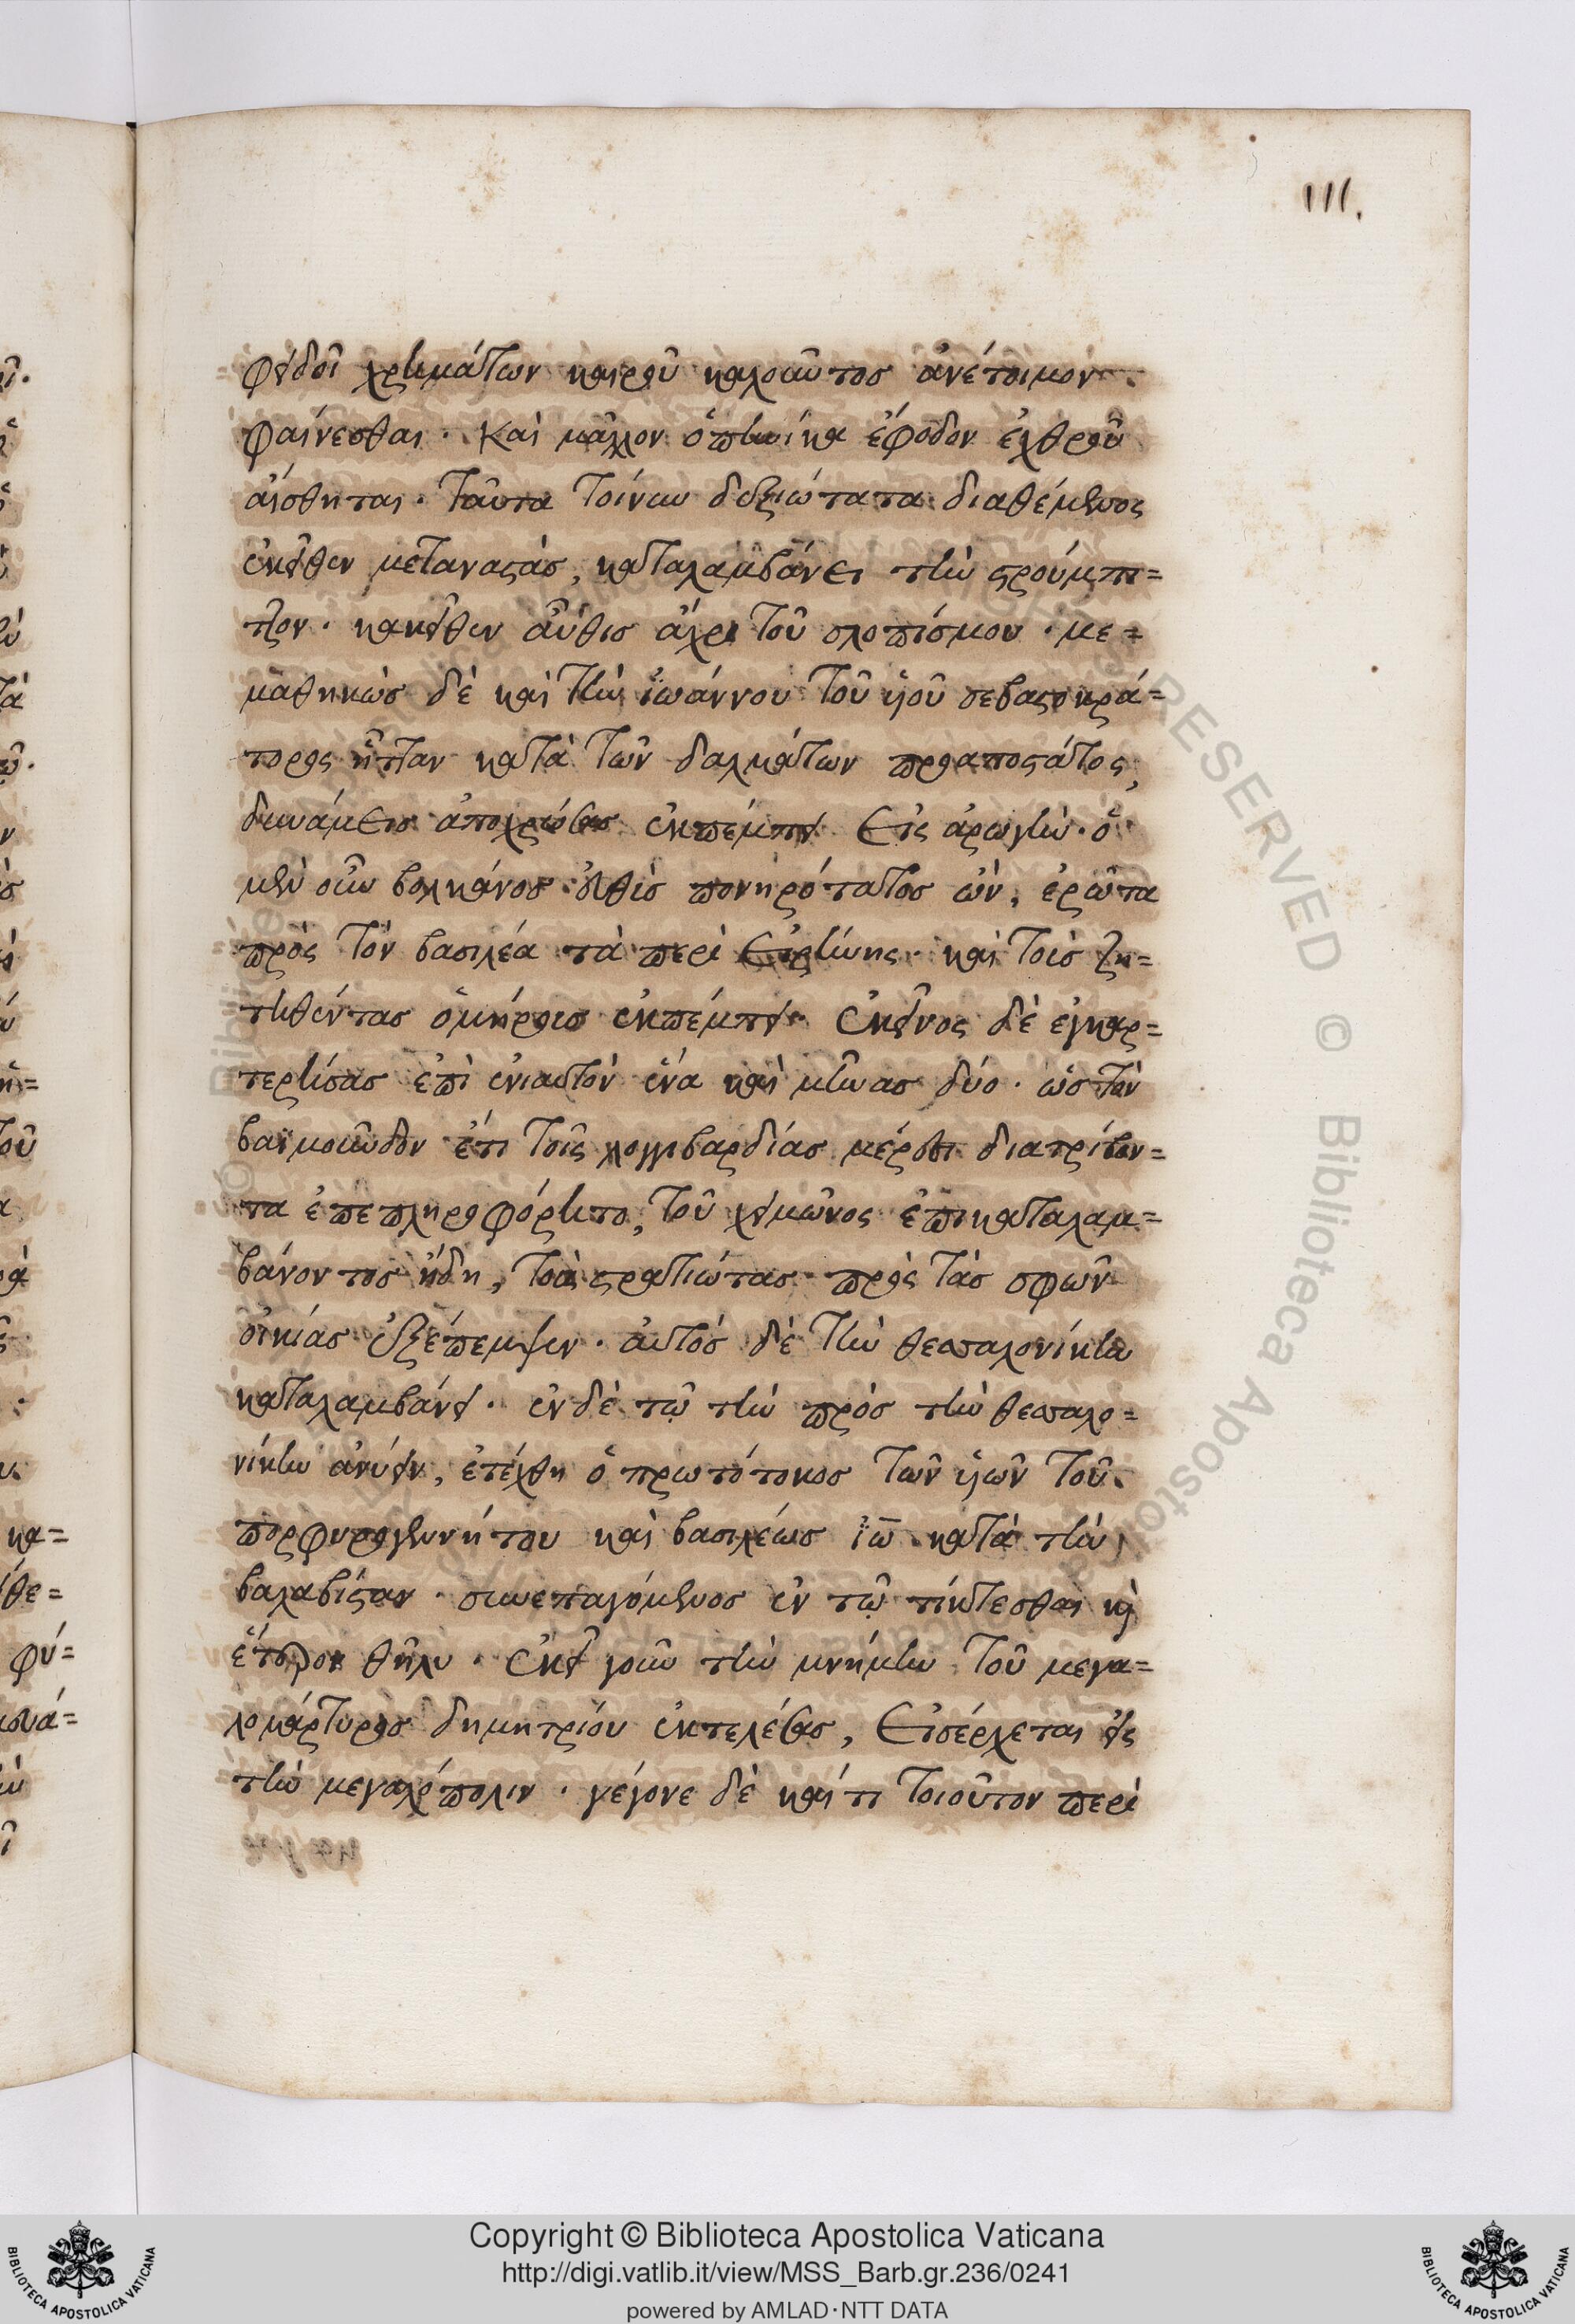 111.
φειδοῖ χρημάτων καιροῦ καλοῦντος ἀνέτοιμον
φαίνεσθαι · Καὶ μᾶλλον ὁπηνίκα ἔφοδον ἐχθροῦ
αἴσθηται · Ταῦτα τοίνυν δεξιώτατα διαθέμενος
ἐκεῖθεν μεταναστὰσ, καταλαμβάνει τὴν στρούμπι=
τζον · κακεῖθεν αὖθισ ἄχρι τοῦ σλοπίσμου · με=
μαθηκὼσ δὲ καὶ τὴν ἰωάννου τοῦ ὑιοῦ σεβαστοκρά=
τορος ἧτταν κατὰ τῶν δαλμάτων προαποστάτος,
δυνάμεισ ἀποχρώσας ἐκπέμπει Εἰς ἀρωγὴν · ὁ
μὲν οὖν βολκάνοσ εὐθὺσ πονηρότατοσ ὢν, ἐρῶτα
πρὸς τὸν βασιλέα τὰ περὶ Εἰρήνης · καὶ τοὺσ ζη=
τηθέντασ ὁμήρουσ ἐκπέμπει · Ἐκεῖνος δὲ ἐγκαρ=
τερήσασ ἐπὶ ἐνιαυτὸν ἕνα καὶ μῆνασ δύο · ὡσ τὸν
βαϊμοῦνδον ἔτι τοῖς λογγιβαρδίασ μέρεσι διατρίβον=
τα ἐπεπληροφόρητο, τοῦ χειμῶνος ἐπικαταλαμ=
βάνοντοσ ἤδη, τοὺς στρατιώτασ πρὸς τὰσ σφῶν
οἰκίασ ἐξέπεμψεν · αὐτόσ δὲ τὴν θεσσαλονίκην
καταλαμβάνει · ἐν δὲ τῷ τὴν πρὸσ τὴν θεσσαλο=
νίκην ἀνύειν, ἐτέχθη ὁ πρωτότοκοσ τῶν ὑιῶν τοῦ
πορφυρογεννήτου καὶ βασιλέωσ ἰω̅ κατὰ τὴν
βαλαβίσταν · συνεπαγόμενοσ ἐν τῷ τίκτεσθαι κὶ
ἕτερον θῆλυ · Ἐκεῖ γοῦν τὴν μνήμην τοῦ μεγα=
λομάρτυροσ δημητρίου ἐκτελέσας, Εἰσέρχεται εἰς
τὴν μεγαλόπολιν · γέγονε δὲ καί τι τοιοῦτον περὶ
Copyright © Biblioteca Apostolica Vaticana
http://digi.vatlib.it/view/MSS_Barb.gr.236/0241
powered by AMLAD·NTT DATA
BIBLIOTECA APOSTOLICA VATICANA
BIBLIOTECA APOSTOLICA VATICANA